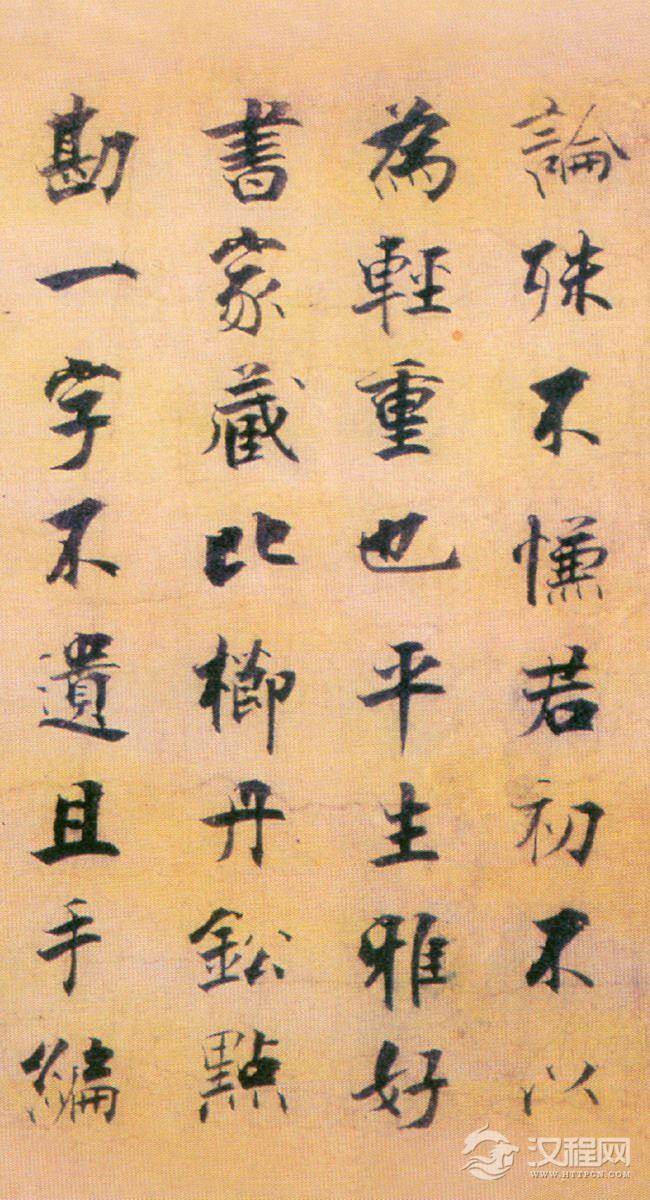 論殊不慊若初不以
為輕重也平生雅好
書家藏比櫛丹鈆點
勘一字不遺且手編
汉程网
WWW.HTTPCN.COM